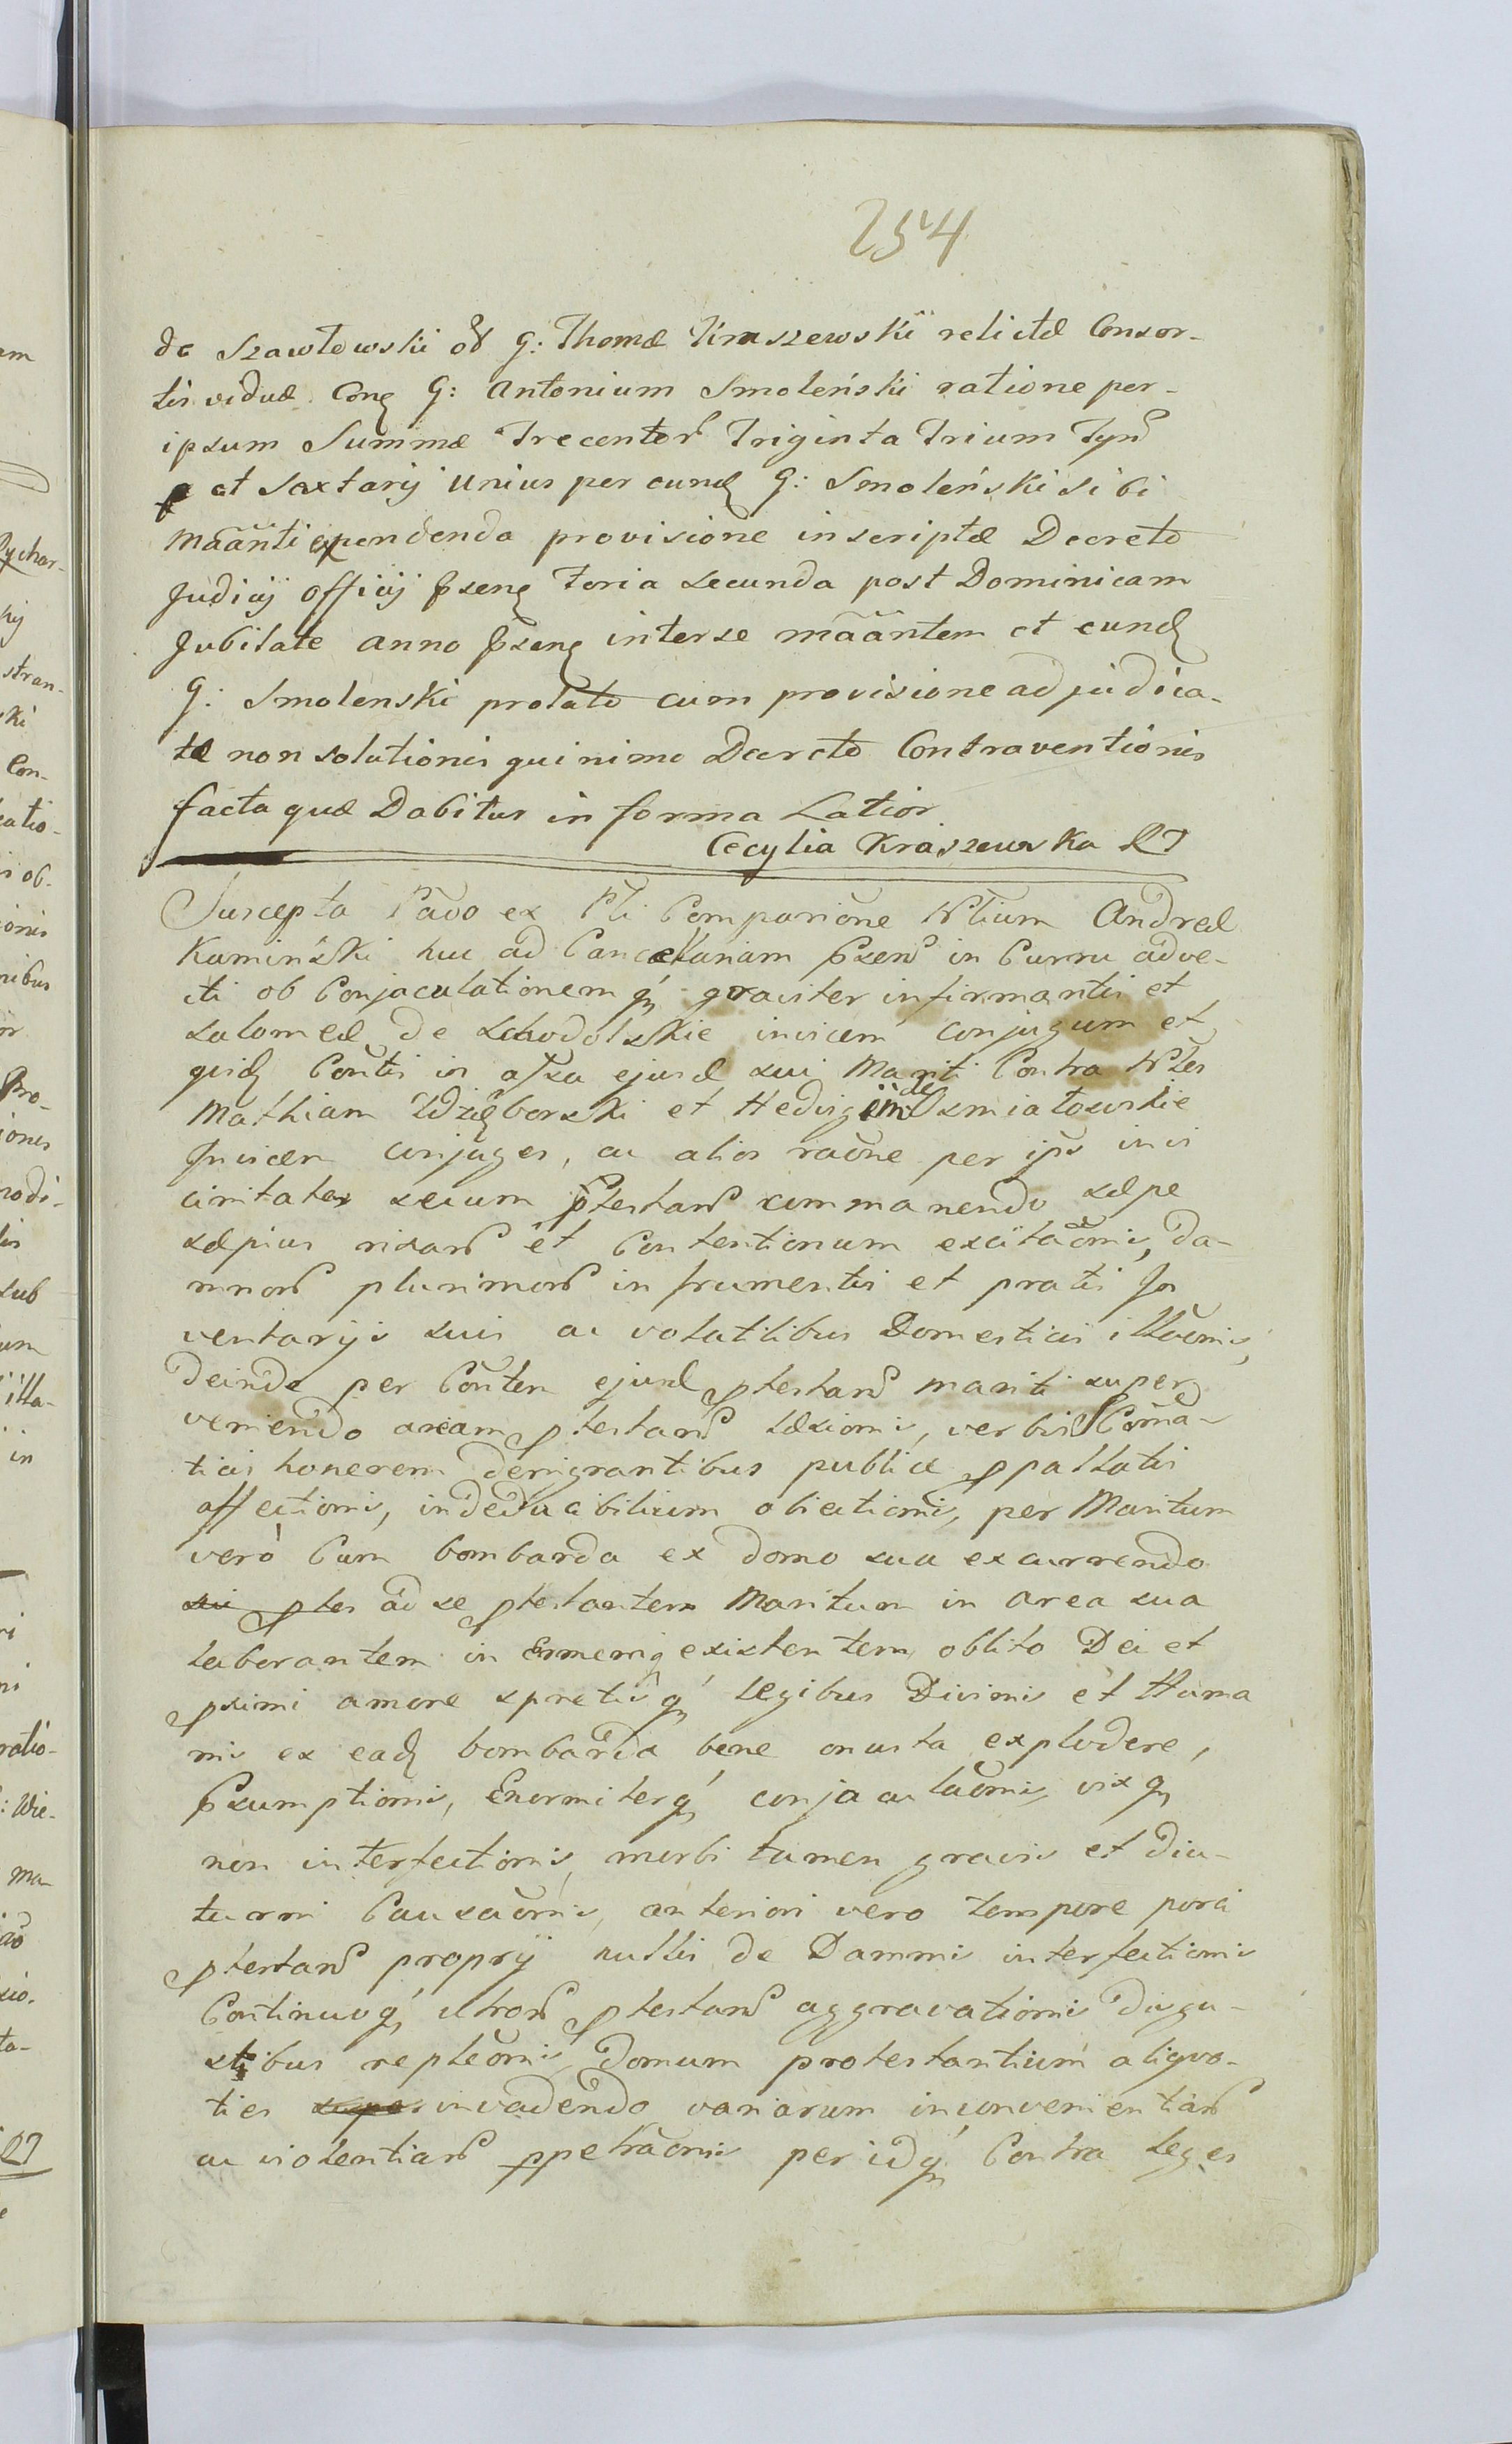 254
de Szawłowski olim G: Thomæ Kraszewski relictæ Consor-
tis viduæ. Conq G: Antonium Smoleński ratione per-
ipsum Summæ Trecentor Triginta Trium Tynf
et Saxtarij Unius per eund G: Smoleński sibi
Mããnti expendenda provisione inscriptæ Decreto
Judicij Officij pseng Feria secunda post Dominicam
Jubilate anno pseng inter se mããntem et eund
G: Smolenski prolato cum provisione adjudica-
tæ non solutionis quinimo Decreto Contraventionis
facta quæ Dabitur in forma Latior
Cecylia Kraszewska
Suscepta ex Pti Comparitione Nlium Andreæ
Kamiński huc ad Cancellariam psen in Curru adve-
cti ob Conjaculationem q graviter infirmantis et
Salomeæ de invicem conjugum et
quid Contis in assa ejusd sui Mariti Contra Nles
Mathiam Zdzięborski et Hedvigem de Osmiałowskie
Invicem conjuges, ac alios raone per ips in vi
cinitate secum ptestan commanendo sæpe
sæpius rixar et Contentionum excitaonis, Da-
mnor plurimor in frumentis et pratis In
ventarijs suis ac volatilibus Domesticis illaonis,
Deinde per Conten ejusd ptestan mariti super
veniendo aream ptestan læsionis, verbis Coma-
ticis honorem denigrantibus publice ppallatis
affectionis, indeducibilium obiectionis, per Maritum
vero Cum bombarda ex domo sua excurrendo
ptes ad se ptestantem Maritum in area sua
laborantem in existentem, oblito Dei et
pximi amore spretisq legibus Divinis et Huma
nis ex ead bombarda bene onusta explodere,
psumptionis, Enormiterq conjaculaonis, vixq
non interfectionis, morbi tamen gravis et diu-
turni Causaonis, anteriori vero tempore porci
ptestan proprij nullis de Damnis interfectionis
Continuoq ptestan aggravationis disgu-
stibus repleonis, Domum protestantium aliquo-
ties invadendo variarum inconvenientiar
ac violentiar ppetraonis per idq Contra leges